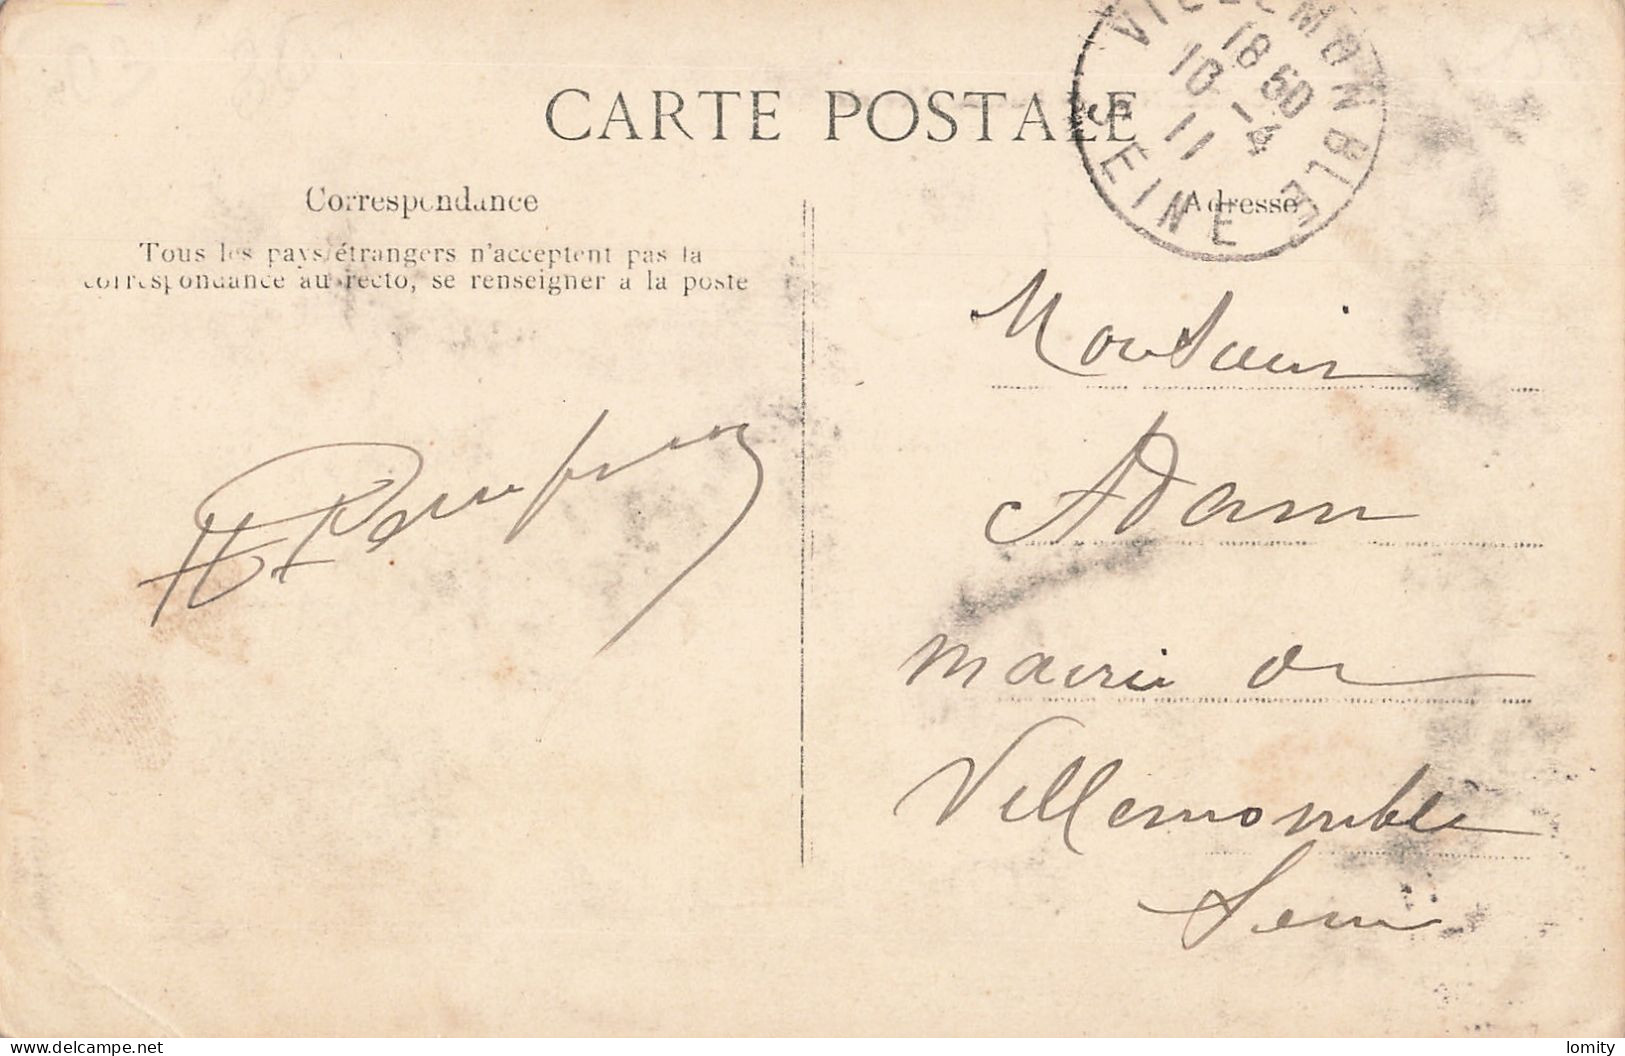 CARTE POSTALE
VILLEMOMBLE
18 50
10 -4
11
SEINE
Correspondance
Adresse
Tous les pays étrangers n'acceptent pas la
correspondance au recto, se renseigner a la poste
Monsieur
Adam
mairie de
Villemomble
Seine
delcampe.net
lomity